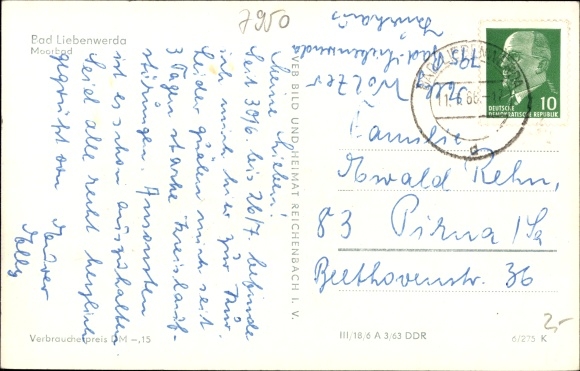 7950
Bad Liebenwerda
Moorbad
Meine Lieben!
Seit 30/6. bis 26/7. befinde
ich mich hier zur Kur.
Leider quälen mich seit
3 Tagen starke Kreislauf-
störungen. Ansonsten
ist es schön auszuhalten.
Seid alle recht herzlich
gegrüßt von Eurer
Nelly
Verbraucherpreis DM -,15
VEB BILD UND HEIMAT REICHENBACH I. V.
Wolzer
795 Bad-Liebenwerda
BAD LIEBENWERDA
10
DEUTSCHE
DEMOKRATISCHE REPUBLIK
Familie
Oswald Kehn,
83 Pirna/Sa
Beethovenstr. 36
III/18/6 A 3/63 DDR
6/275 K
2,-